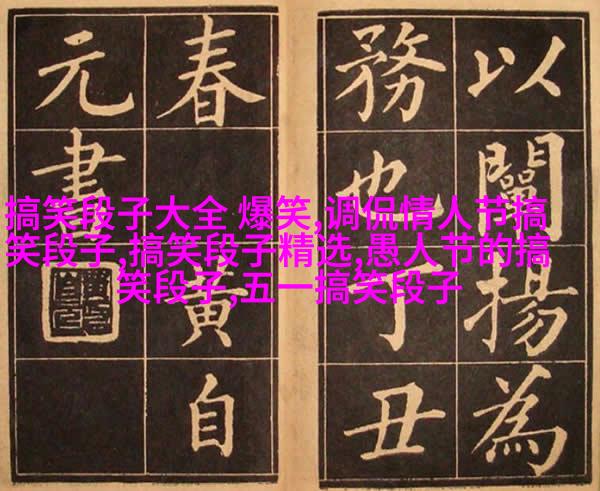 以闡揚為
務也丁丑
春 黃自
元書
搞笑段子大全 爆笑,调侃情人节搞
笑段子,搞笑段子精选,愚人节的搞
笑段子,五一搞笑段子